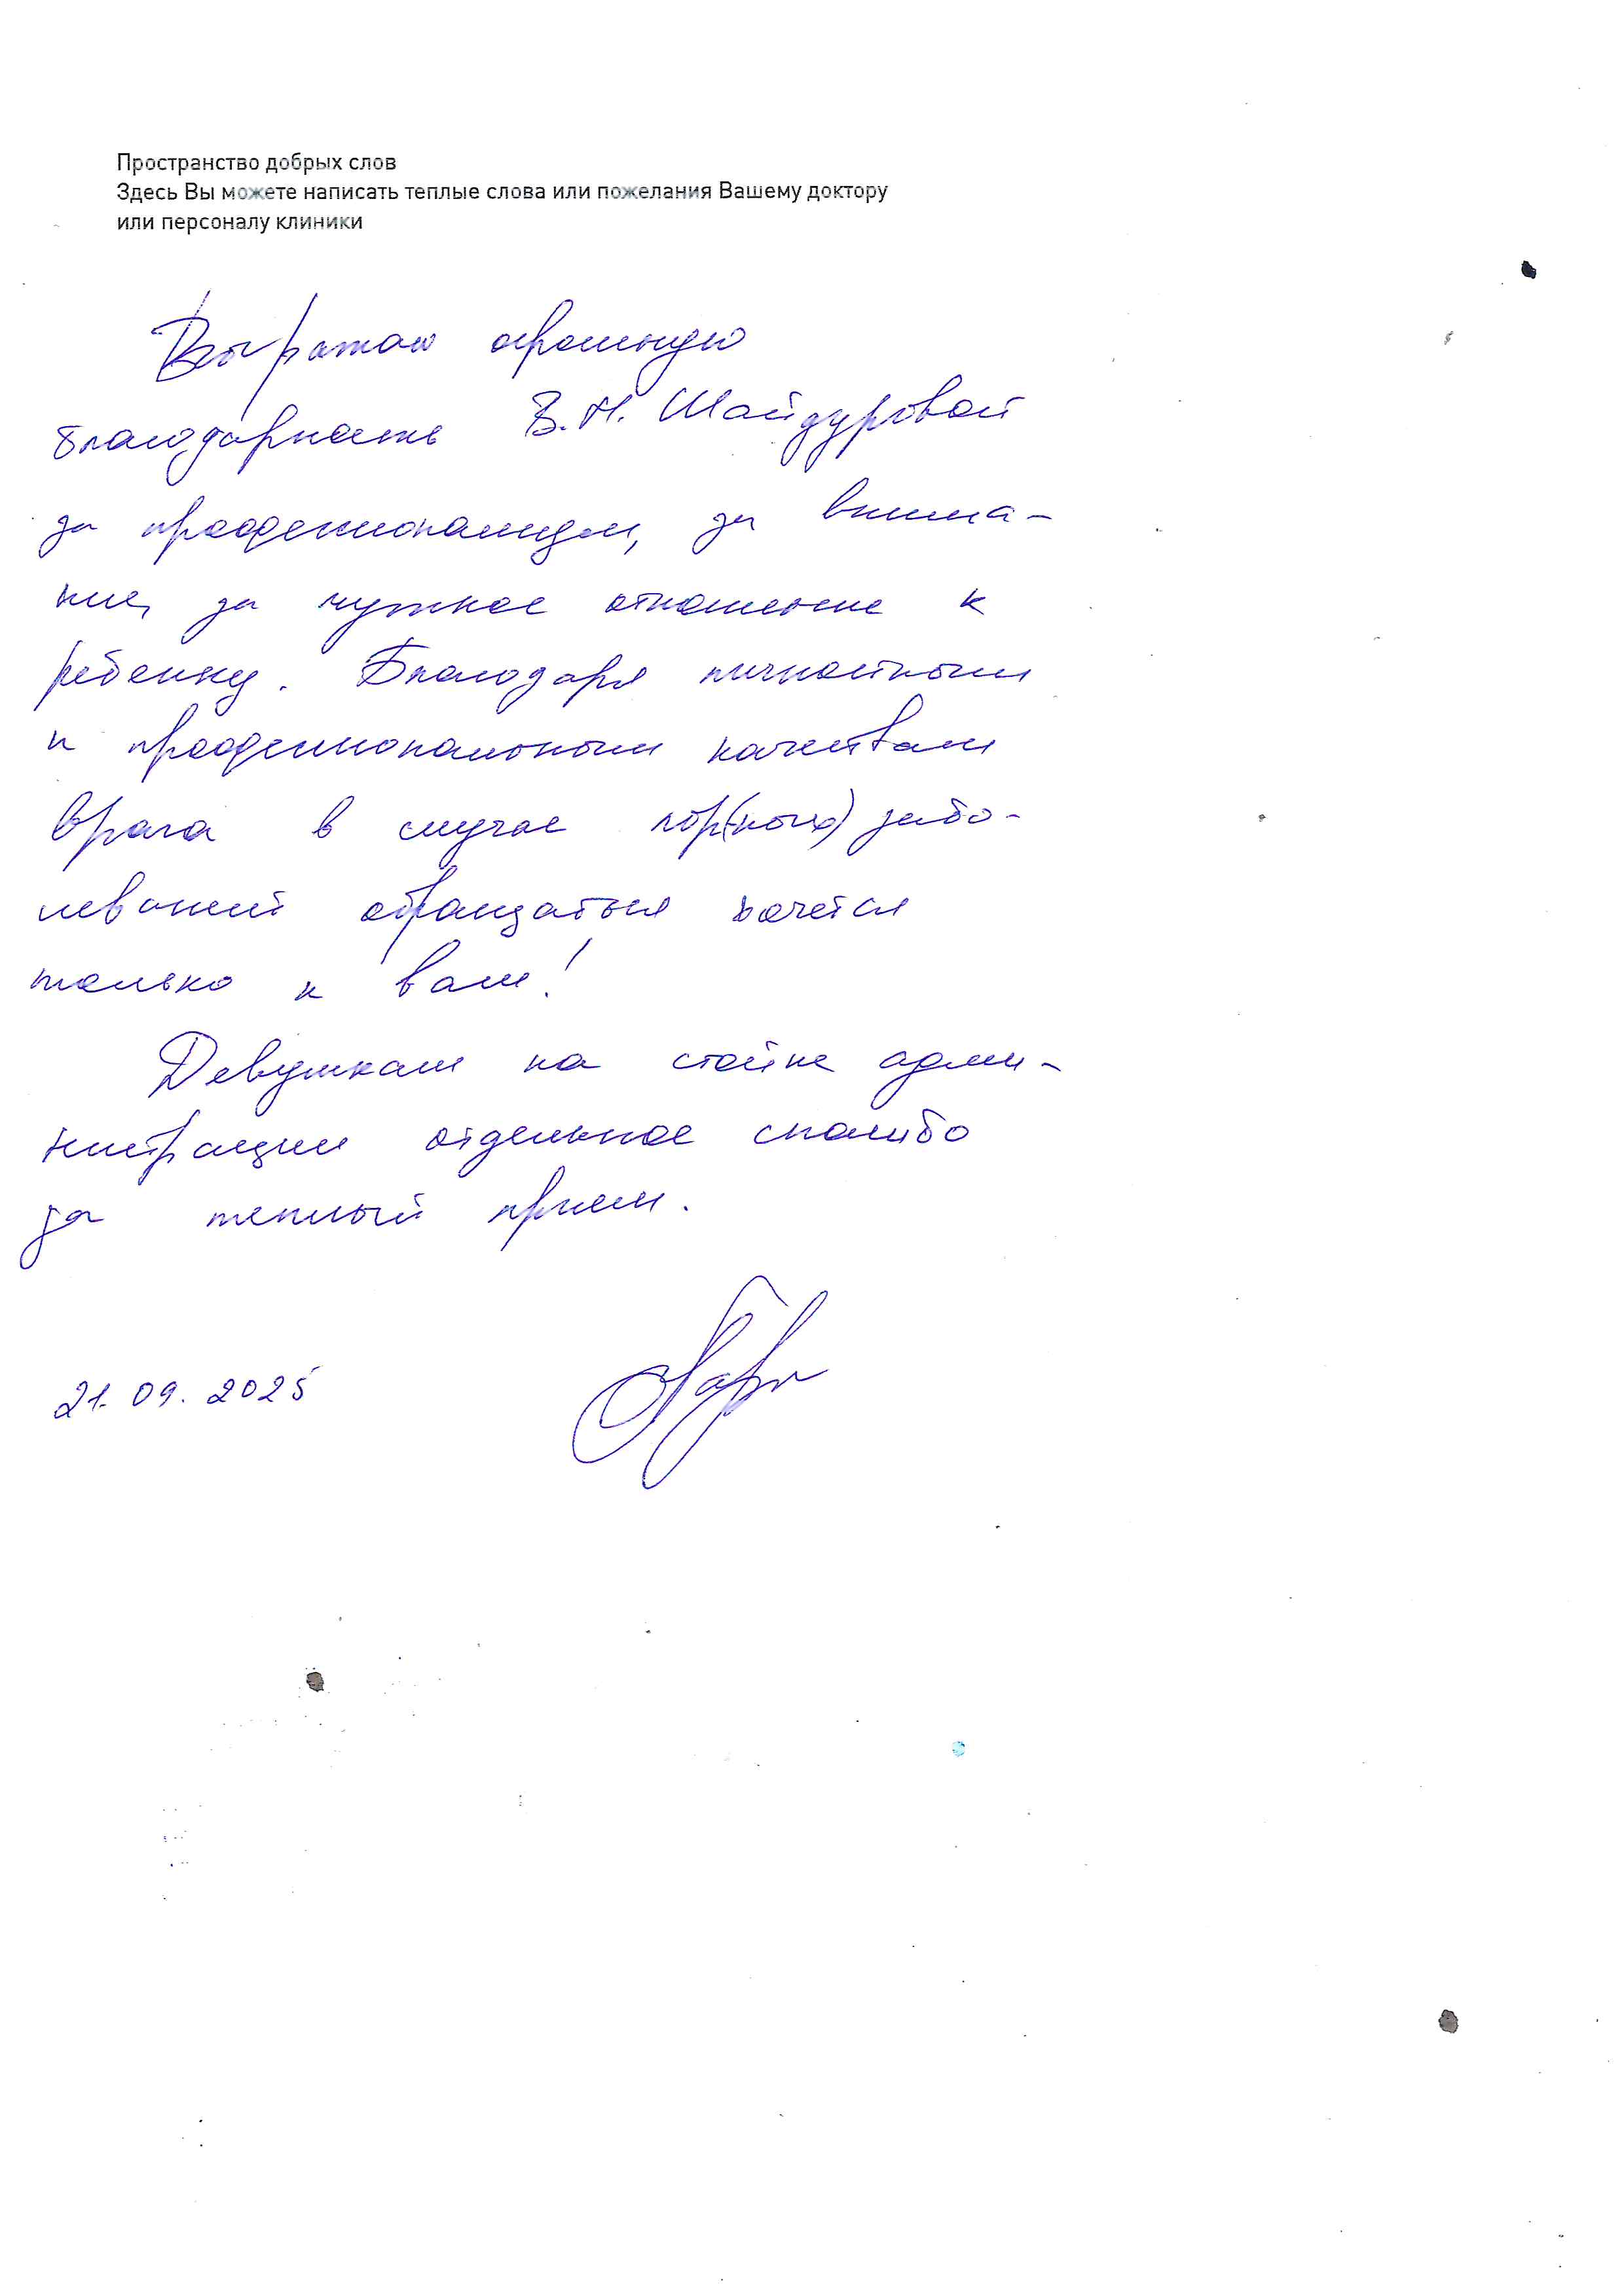 Пространство добрых слов
Здесь Вы можете написать теплые слова или пожелания Вашему доктору
или персоналу клиники
Выражаю огромную
благодарность В.Н. Шайдуровой
за профессионализм, за внима-
ние, за чуткое отношение к
ребенку. Благодаря личностным
и профессиональным качествам
врача в случае лор(-ных) забо-
леваний обращаться хочется
только к вам!
Девушкам на стойке адми-
нистрации отдельное спасибо
за теплый прием.
21.09.2025